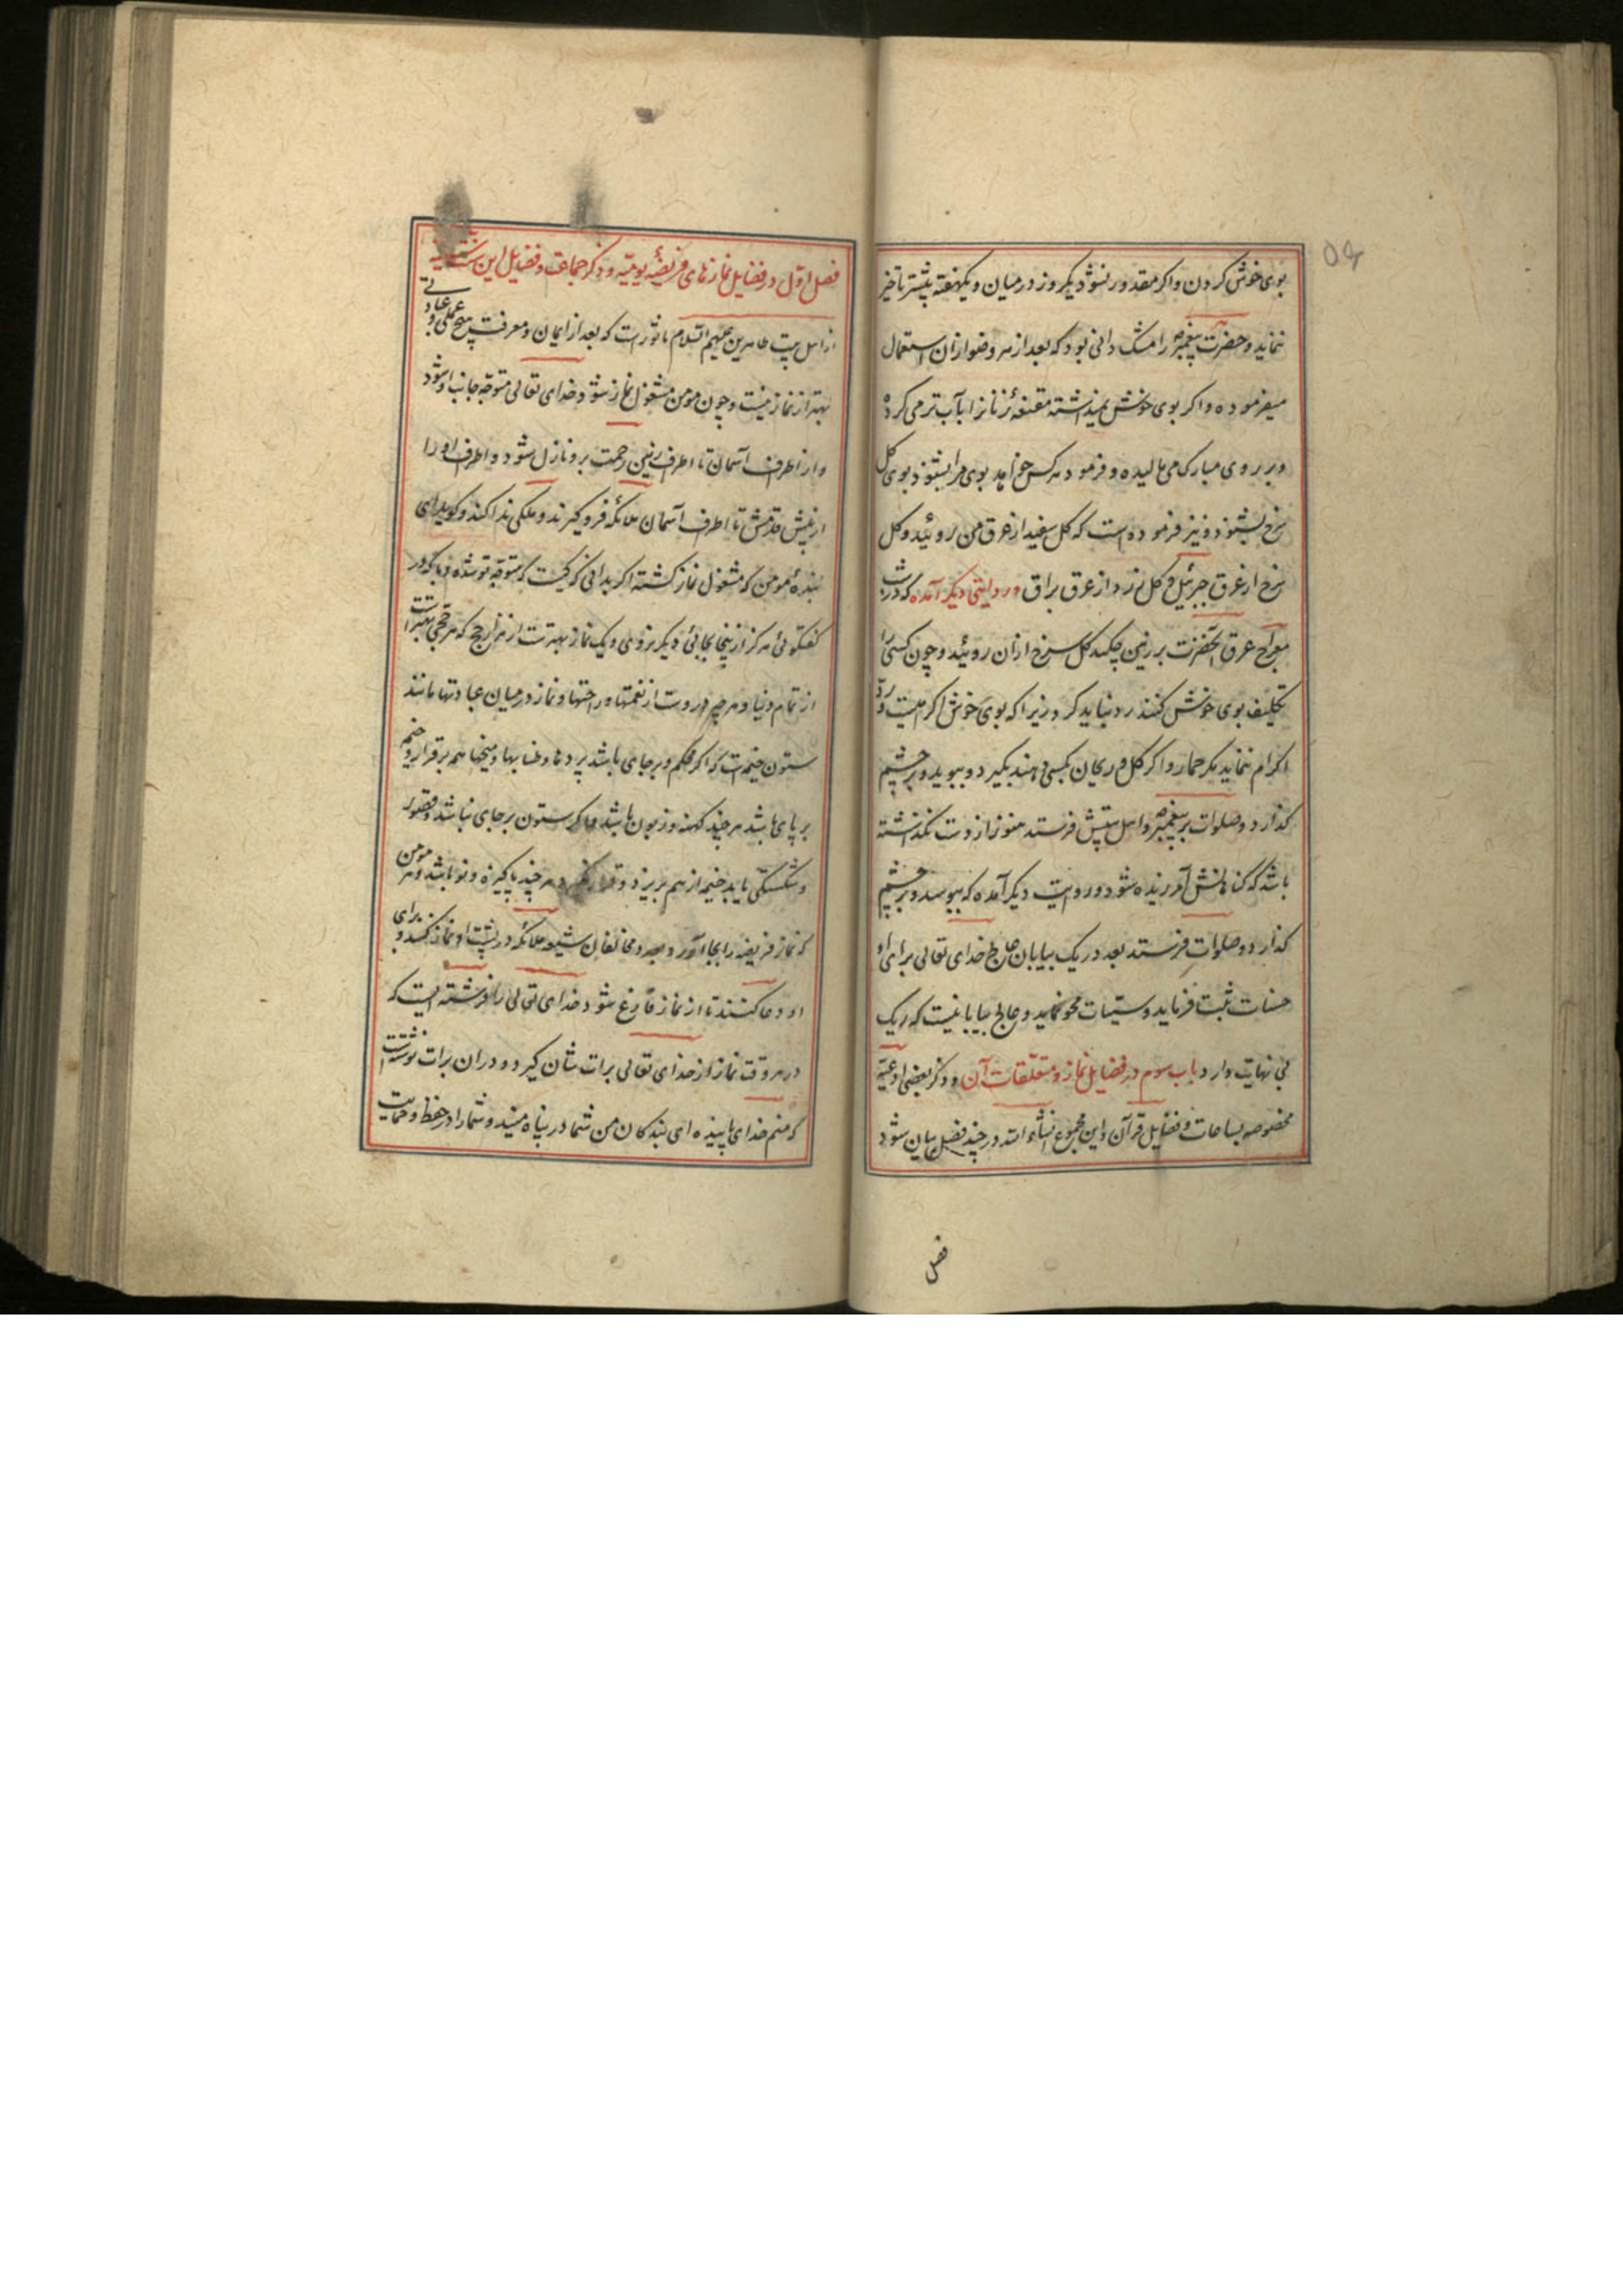 بوی خوش کردن واکر مقدور نشود یکروز در میان و یکهفته بیشتر تاخیر
ننماید و حضرت پیغمبر را مشک دانی بود که بعد از هر وضو ازان استعمال
میفرموده و اکر بوی خوش نمیداشته مقنعهٔ زنانرا بآب تر می کرده
و بر روی مبارک می مالیده و فرمود هر کس خواهد بوی مرا بشنود بوی کل
سرخ بشنود و نیز فرموده است که کل سفید از عرق من روئیده و کل
سرخ از عرق جبرئیل و کل زرد از عرق براق و در روایتی دیکر آمده که در شب
معراج عرق آنحضرت بر زمین چکید کل سرخ ازان روئید و چون کسی را
تکلیف بوی خوش کنند رد نباید کرد زیرا که بوی خوش اکرامیست و رد
اکرام ننماید مکر حمار و اکر کل و ریحان بکسی دهند بکیرد و ببوید و بر چشم
کذارد و صلوات بر پیغمبر و اهل بیتش فرستد هنوز از دست نکذاشته
باشد که کناهانش آمرزیده شود و در روایت دیکر آمده که ببوسد و بر چشم
کذارد و صلوات فرستد بعدد ریک بیابان عالج خدای تعالی برای او
حسنات ثبت فرماید و سیئات محو نماید و عالج بیابانیست که ریک
بی نهایت دارد باب سوم در فضایل نماز و متعلقات آن و ذکر بعضی ادعیه
مخصوصه بساعات و فضایل قرآن و این مجموع انشاء الله در چند فصل بیان شود
فصل
فصل اول در فضایل نمازهای فریضهٔ یومیه و ذکر جماعت و فضایل این
از اهل بیت طاهرین علیهم السلام ماثور است که بعد از ایمان و معرفت هیچ عملی و عبادتی
بهتر از نماز نیست و چون مومن مشغول نماز شود خدای تعالی متوجه جانب او شود
و از اطراف آسمان تا اطراف زمین رحمت برو نازل شود و اطراف او را
از پیش قدمش تا اطراف آسمان ملائکه فرو کیرند و ملکی ندا کند و کوید ای
بندهٔ مومن که مشغول نماز کشته اکر بدانی که کیست که متوجه تو شده و با که در
کفتکوئی هرکز ازینجا بجائی دیکر نروی و یک نماز بهترست از هزار حج که هر حجی بهتر است
از تمام دنیا و هرچه دروست از نعمتها و راحتها و نماز در میان عبادتها مانند
ستون خیمه است که اکر محکم و بر جای باشد پردها و طنابها و میخها همه برقرار و خیمه
بر پای باشد هر چند کهنه و زبون باشد و اکر ستون بر جای نباشد و قصور
و شکستکی یابد خیمه از هم بریزد و قرار نکیرد هر چند پاکیزه و نو باشد و هر مومن
که نماز فریضه را بجا آورد بعدد مخالفان شیعه ملائکه در پشت او نماز کنند و برای
او دعا کنند تا از نماز فارغ شود و خدای تعالی را فرشته ایست که
در هر وقت نماز از خدای تعالی برات شان کیرد و در ان برات نوشته است
که منم خدای پاینده ای بندکان من شما در پناه منید و شما را در حفظ و حمایت